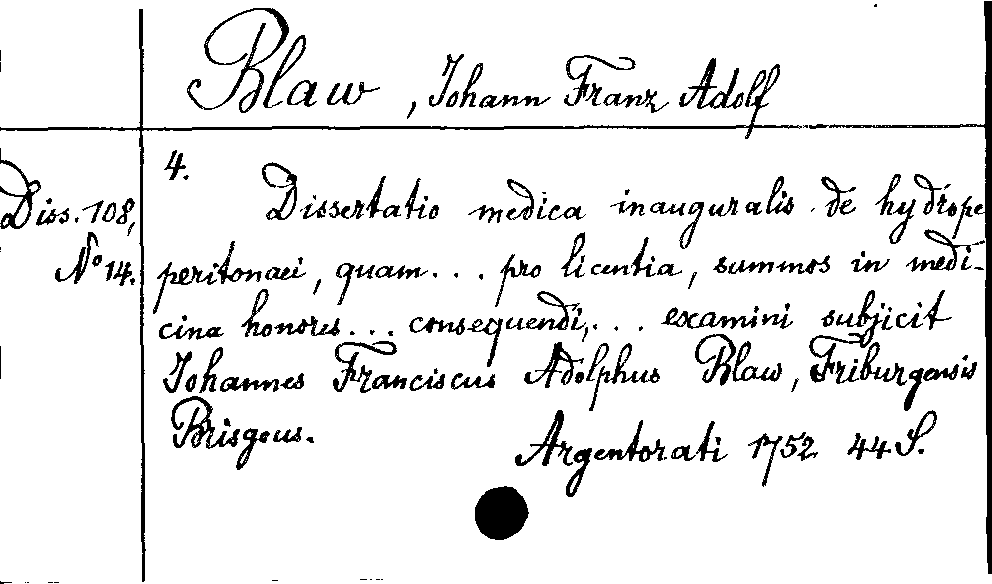 Blaw, Johann Franz Adolf
Diss. 108,
No 14.
4.
Dissertatio medica inauguralis de hydrope
peritonaei, quam... pro licentia, summos in medi-
cina honores... consequendi,... examini subjicit
Johannes Franciscus Adolphus Blaw, Friburgensis
Brisgous.
Argentorati 1752 44 S.